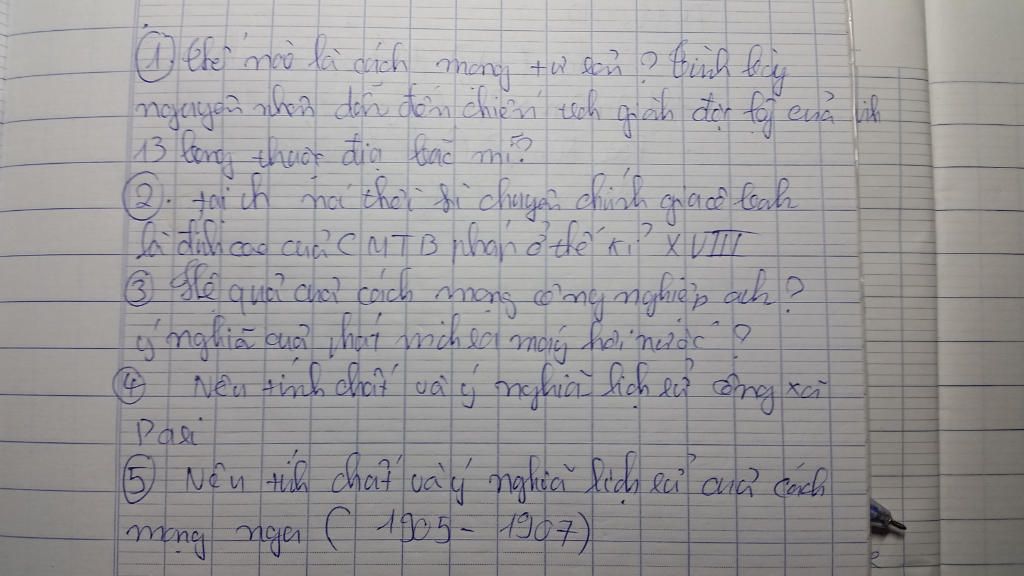 ① thế nào là cách mạng tư sản? trình bày
nguyên nhân dẫn đến chiến tranh giành độc lập của
13 bang thuộc địa bắc mĩ?
②. tại nói thời kì chuyên chính giacô
là đỉnh cao của CMTB pháp ở thế kỉ XVIII
③ Hệ quả của cách mạng công nghiệp anh?
ý nghĩa của phát minh ra máy hơi nước?
④ Nêu tính chất và ý nghĩa lịch sử công xã
Pari
⑤ Nêu tính chất và ý nghĩa lịch sử của cách
mạng nga (1905 - 1907)